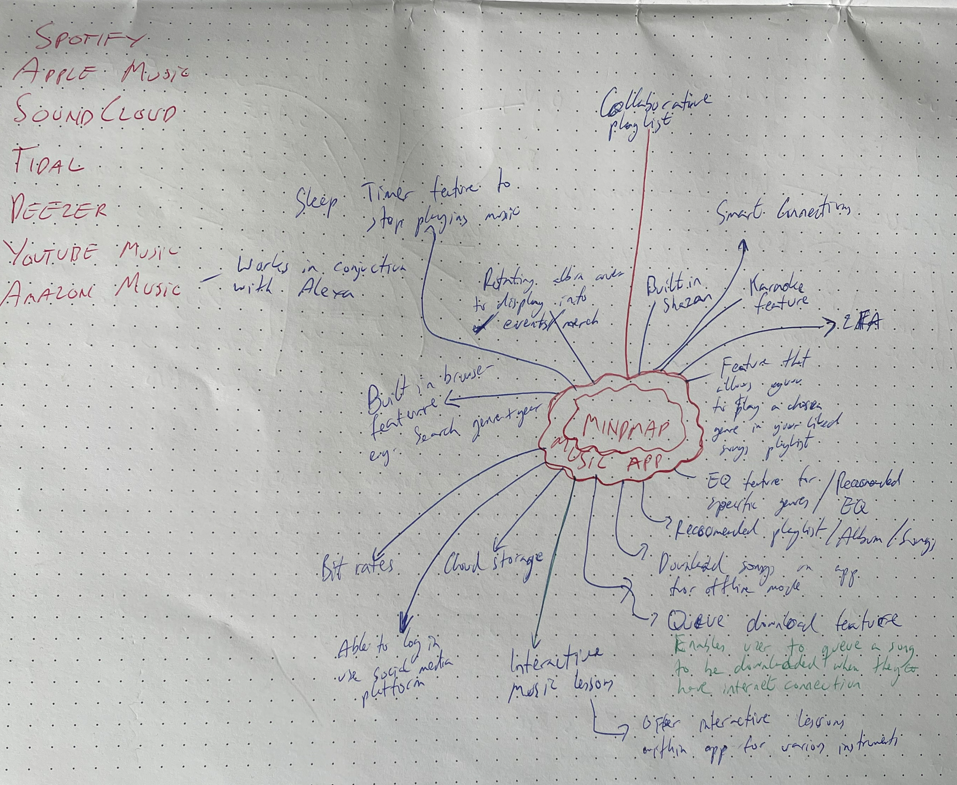 SPOTIFY
APPLE MUSIC
SOUNDCLOUD
TIDAL
DEEZER
YOUTUBE MUSIC
AMAZON MUSIC
Works in conjuction
with Alexa
Sleep Timer feature to
stop playing music
Collaborative
playlist
Smart Connections
Rotating album cover
to display info
events/merch
Built in
Shazam
Karaoke
feature
2FA
Built in browse
feature
Search genre+year
Feature that
allows
to play a chosen
genre in your liked
songs playlist
MINDMAP
MUSIC APP
EQ feature for
specific genres / Recomended
EQ
Recoomended playlist/Album/Songs
Download songs on app
for offline mode
Queue download feature
Enables user to queue a song
to be downloaded when they
have internet connection
Bit rates
Cloud storage
Able to log in
use social media
platform
Interactive
music lessons
Offer interactive lessons
within app for